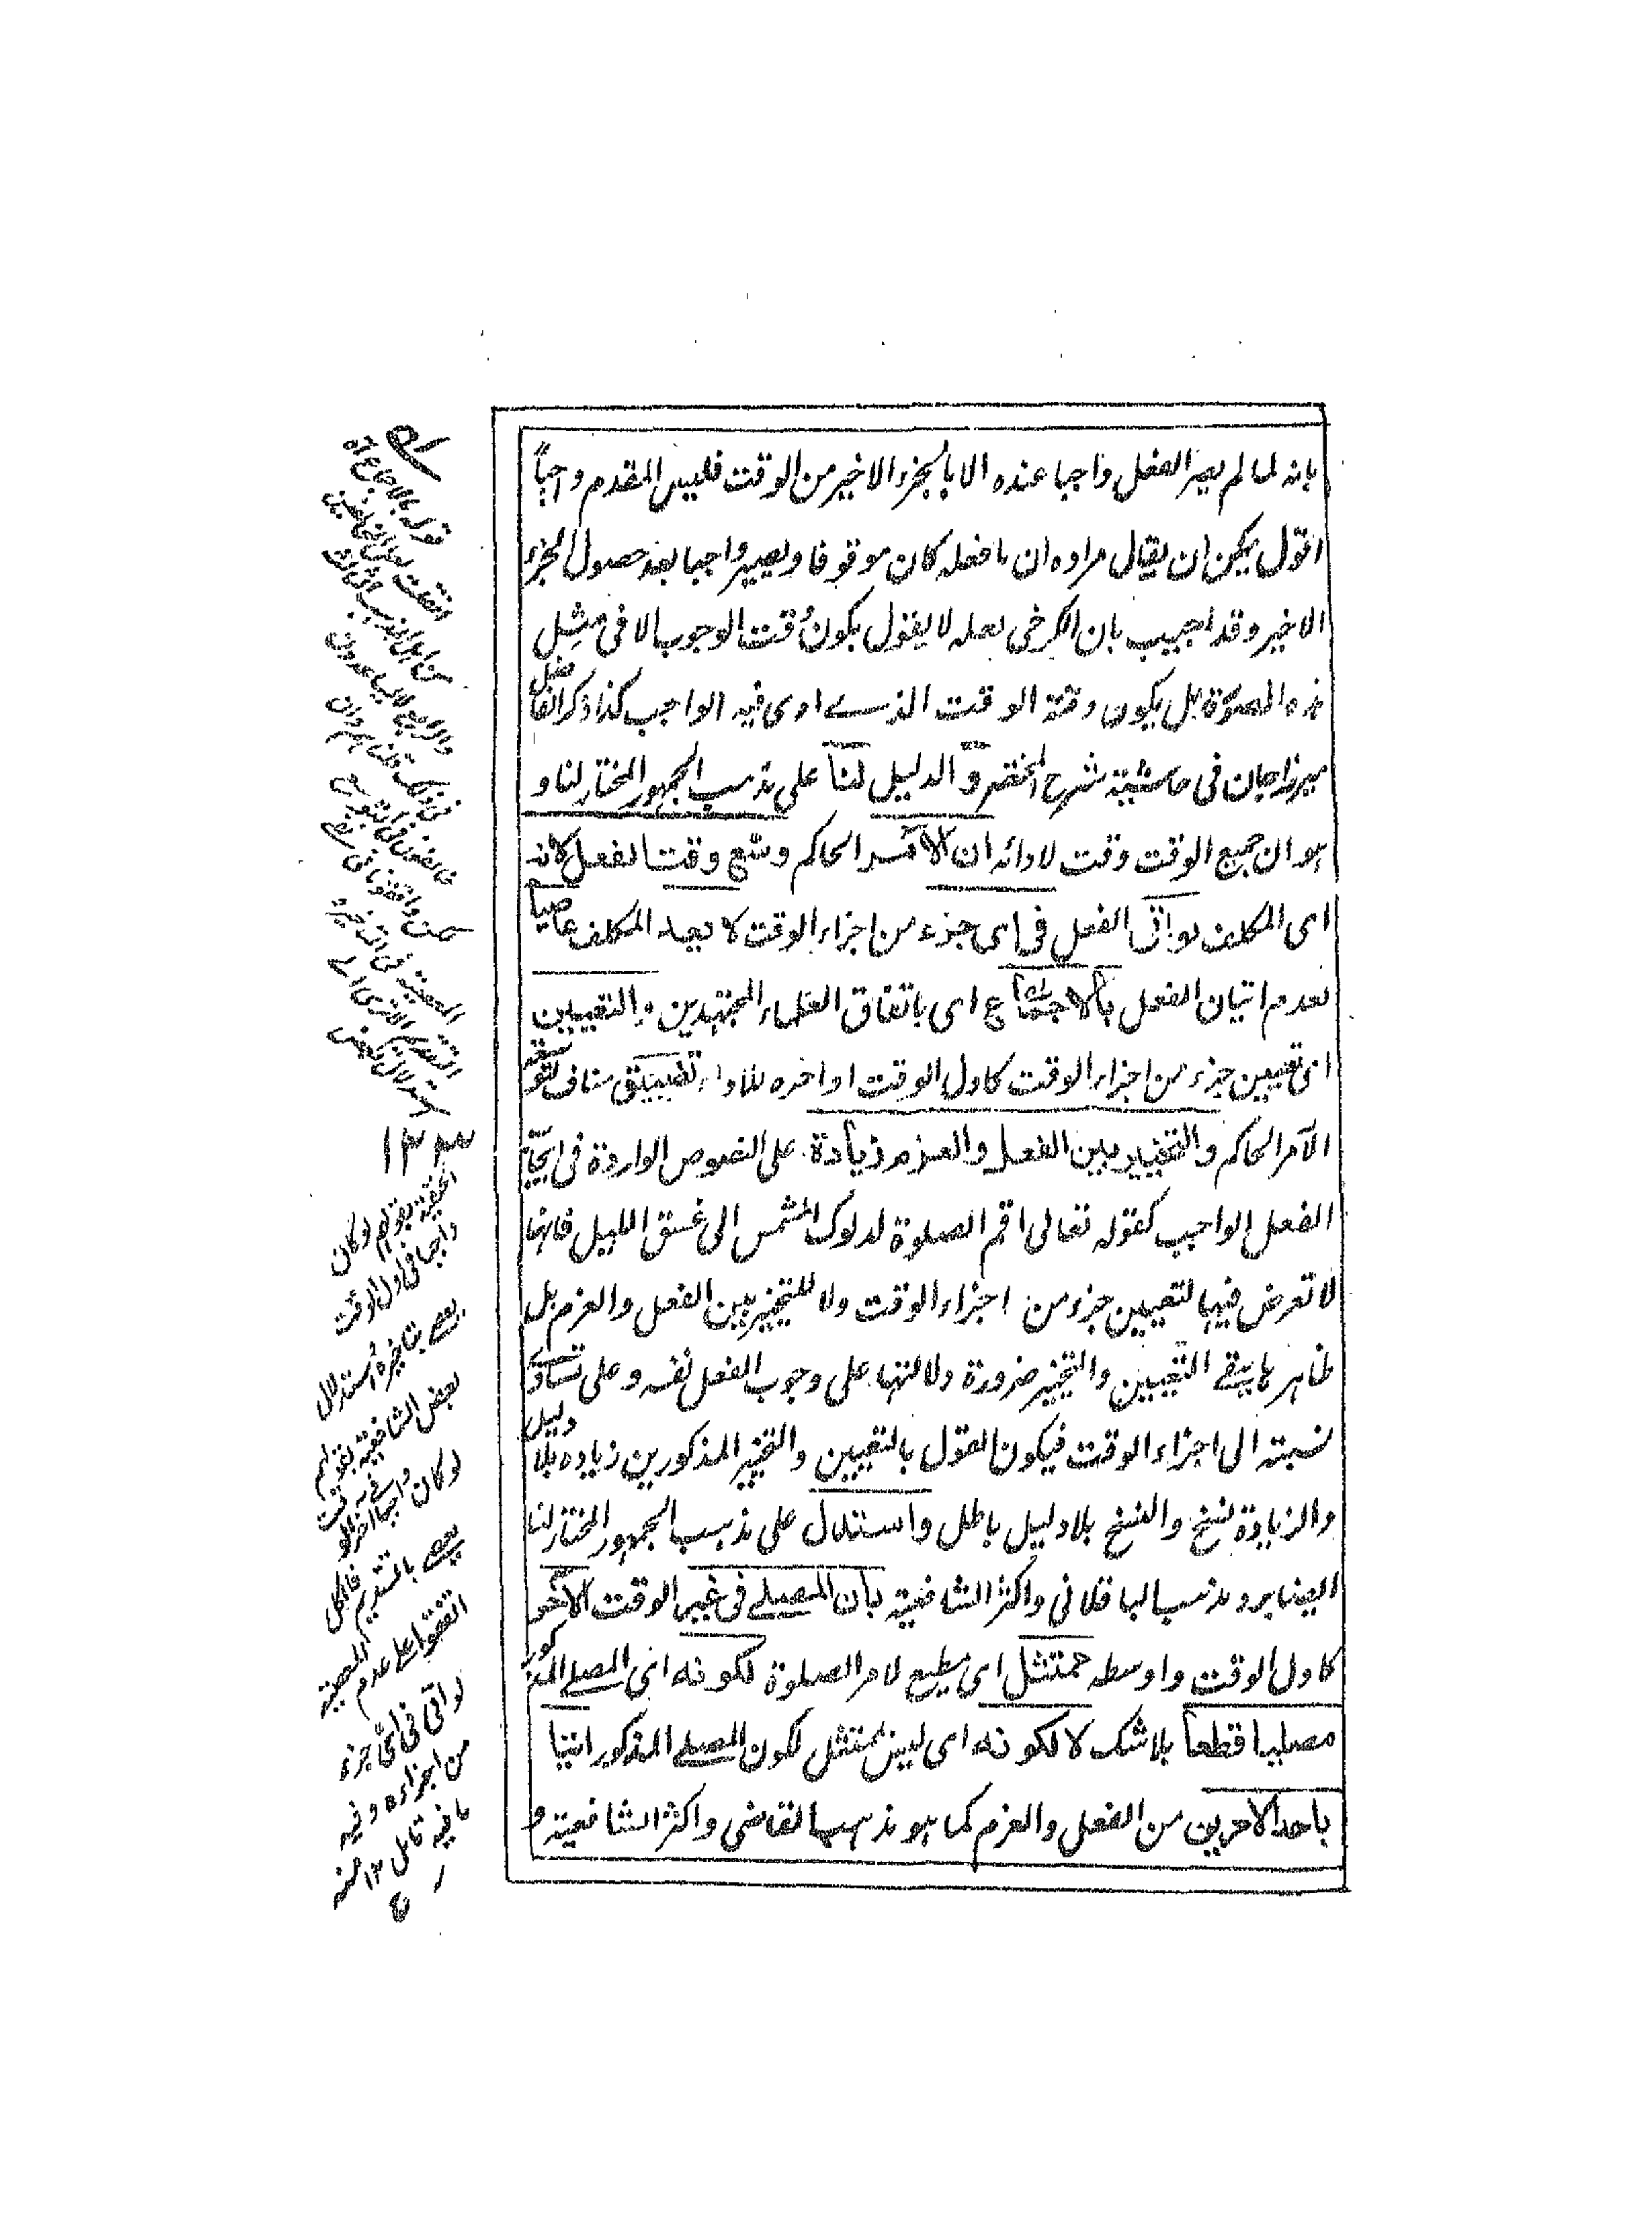 بانه لما لم يصر الفعل واجبا عنده الا بالجزء الاخير من الوقت فليس المقدم واجباً
اقول يمكن ان يقال مراده ان ما فعله كان موقوفا ويصير واجبا بعد حصول الجزء
الاخير وقد اجيب بان الكرخى لعله لا يقول بكون وقت الوجوب الا فى مثل
هذه الصورة بل يكون وقته الوقت الذے ادى فيه الواجب كذا ذكر الفاضل
ميرزا جان فى حاشية شرح المختصر و الدليل لنا على مذهب الجمهور المختار لنا و
هو ان جميع الوقت وقت لادائه ان الآمر الحاكم وسّع وقت الفعل لانه
اى المكلف لو اتى الفعل فى اى جزء من اجزاء الوقت لا يعد المكلف عاصياً
لعدم اتيان الفعل بالاجماع اى باتفاق العلماء المجتهدين و التعيين
اى تعيين جزء من اجزاء الوقت كاول الوقت او اخره للاداء تضييق مناف لتوسعة
الآمر الحاكم والتخيير بين الفعل والعزم زيادة على النصوص الواردة فى ايجاب
الفعل الواجب كقوله تعالى اقم الصلوة لدلوك الشمس الى غسق الليل فانها
لا تعرض فيها لتعيين جزء من اجزاء الوقت ولا للتخيير بين الفعل والعزم بل
ظاهرها ينفے التعيين والتخيير ضرورة دلالتها على وجوب الفعل نفسه و على تساوى
نسبته الى اجزاء الوقت فيكون القول بالتعيين والتخيير المذكورين زياده بلا دليل
والزيادة نسخ والنسخ بلا دليل باطل واستدلال على مذهب الجمهور المختار لنا
ايضا برد مذهب الباقلانى واكثر الشافعية بان المصلے فى غير الوقت الآخر
كاول الوقت واوسطه ممتثل اى مطيع لامر الصلوة لكونه اى المصلے المذكور
مصليا قطعاً بلا شك لا لكونه اى ليس بممتثل لكون المصلے المذكور اتيا
باحد الامرين من الفعل والعزم كما هو مذهب القاضى واكثر الشافعية و
قوله بالاجماع اه
١٢ منه
الحنفية بقولهم لو كان
واجبا فى اول الوقت
يعصے بتاخيره واستدلال
بعض الشافعية بقولهم
لو كان واجبا فے آخر الوقت
يعصے بالتقديم فالكل
اتفقوا على عدم المعصية
لو اتى فى اى جزء
من اجزاءه وفيه
ما فيه تامل ١٢ منه